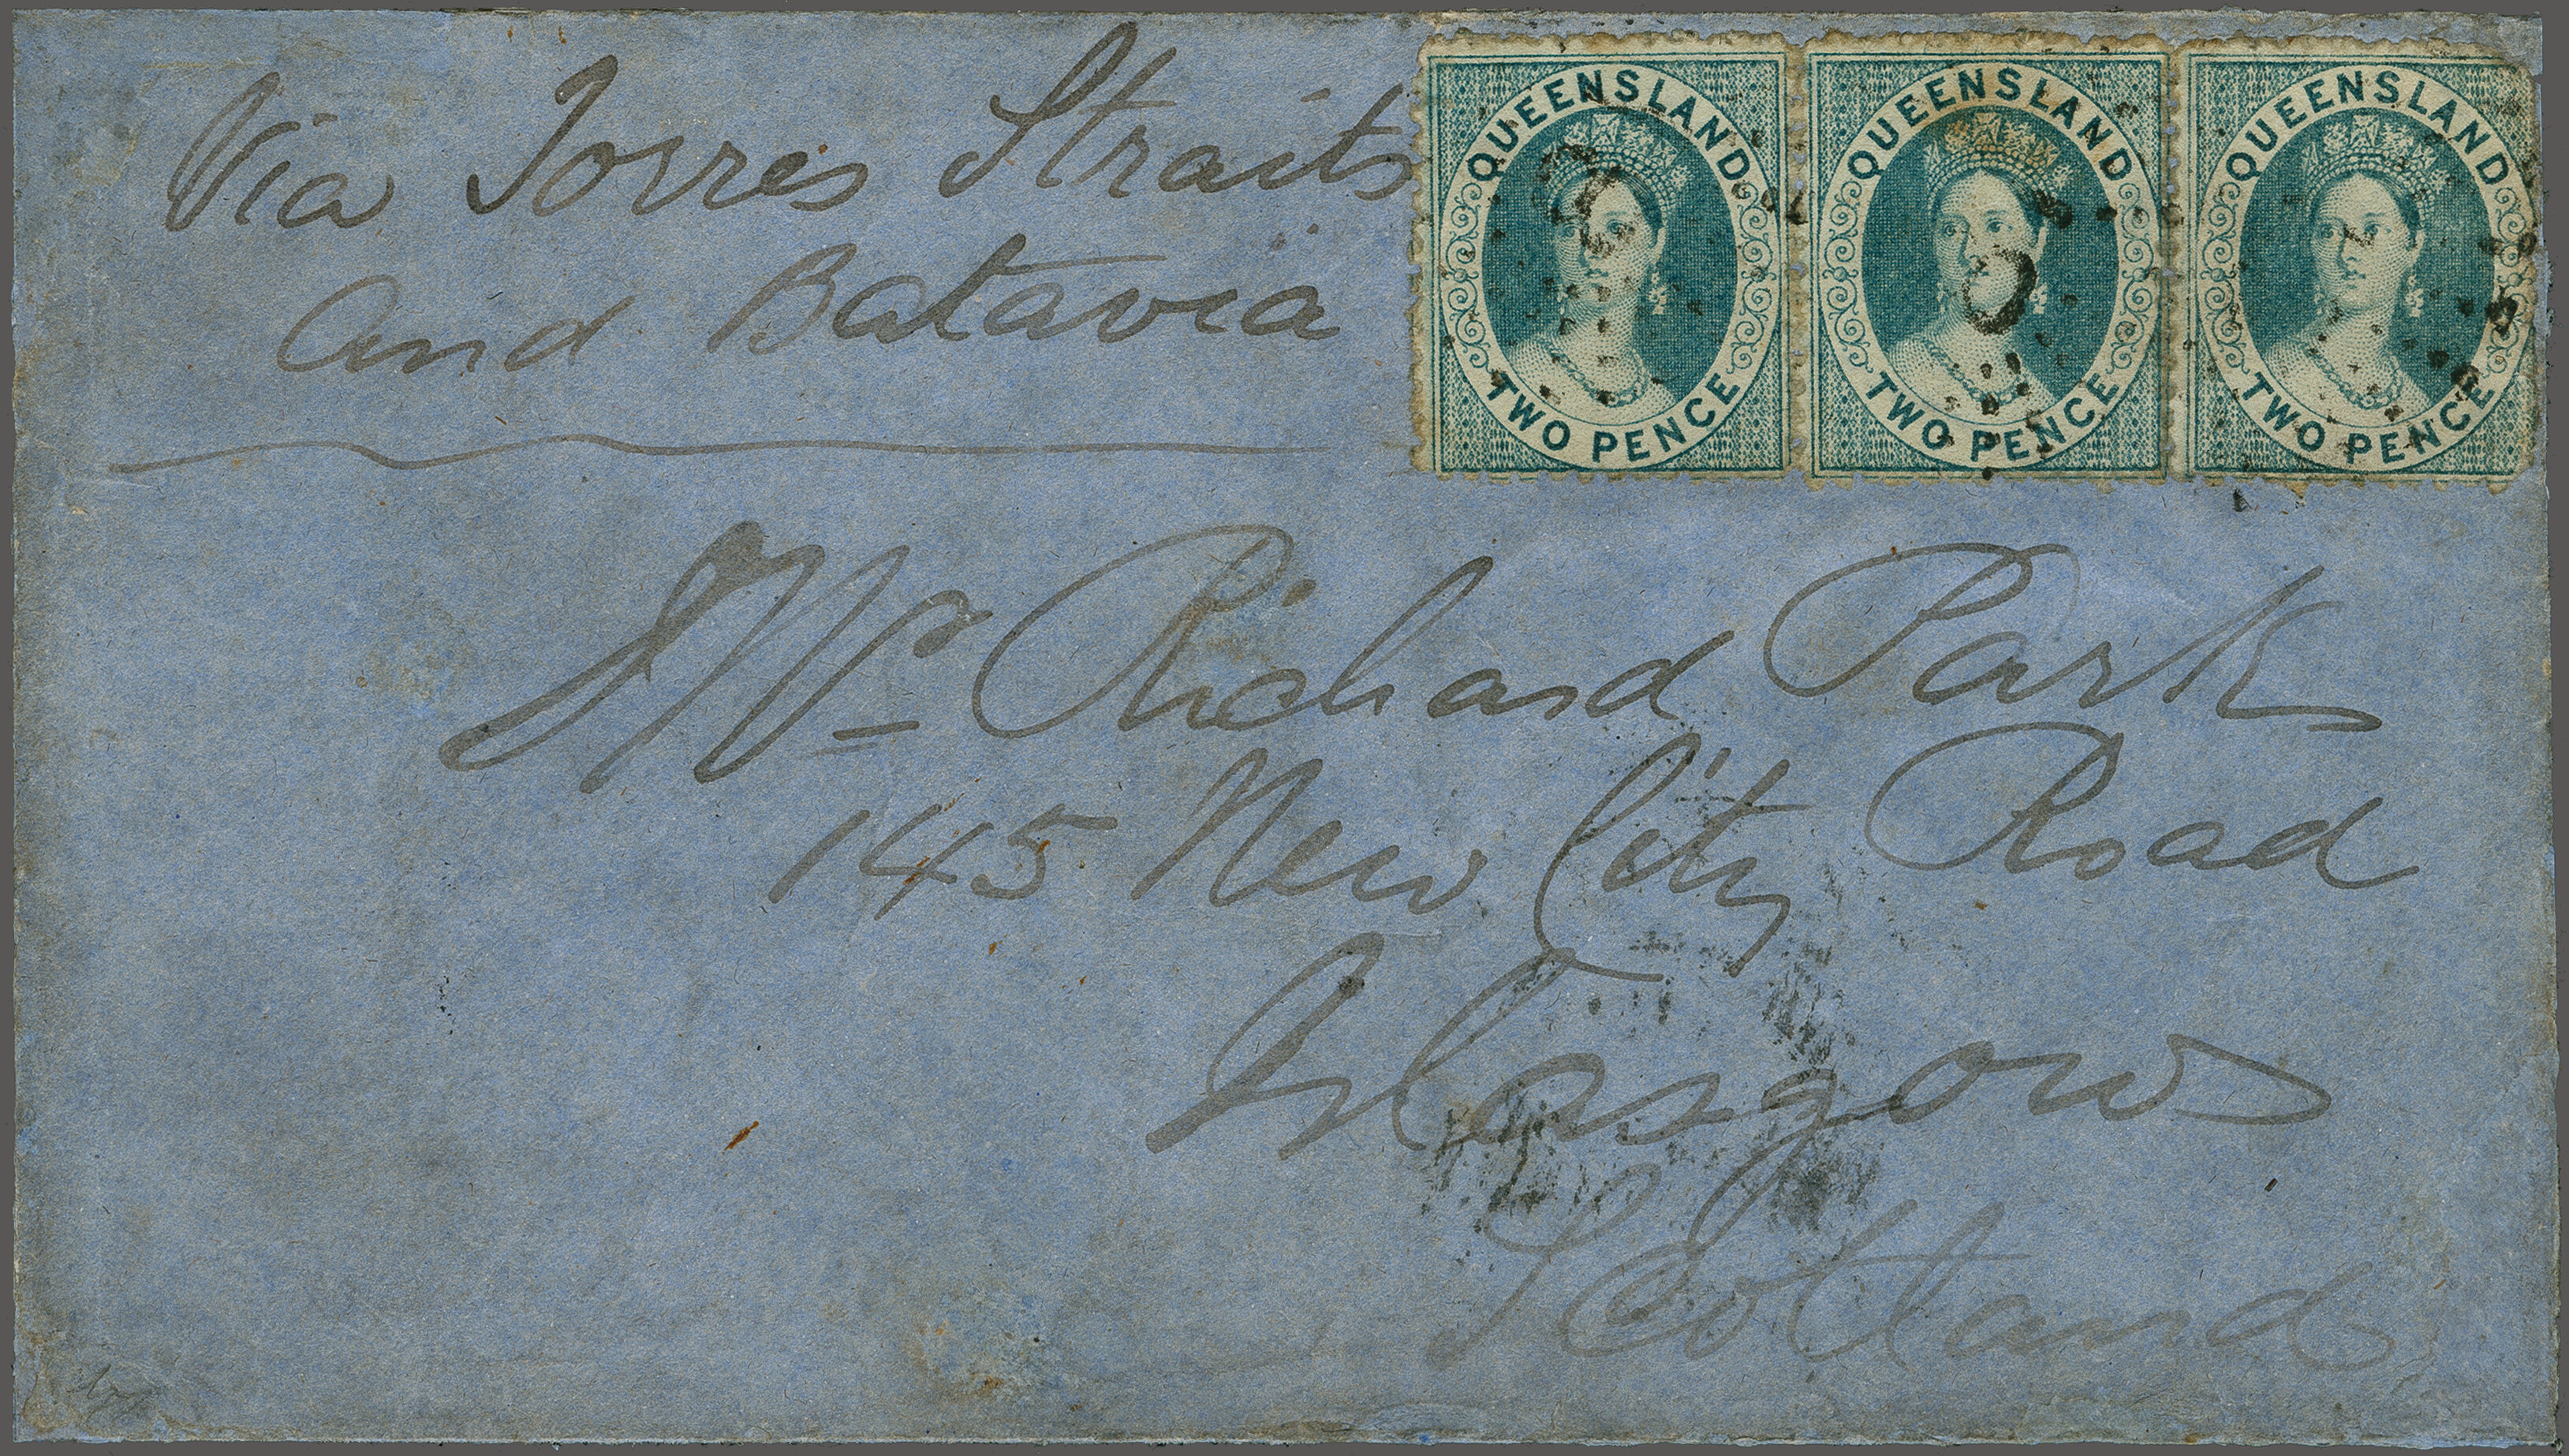 Via Torres Straits
and Batavia
QUEENSLAND
TWO PENCE
QUEENSLAND
TWO PENCE
QUEENSLAND
TWO PENCE
Mr Richard Park
145 New City Road
Glasgow
Scotland